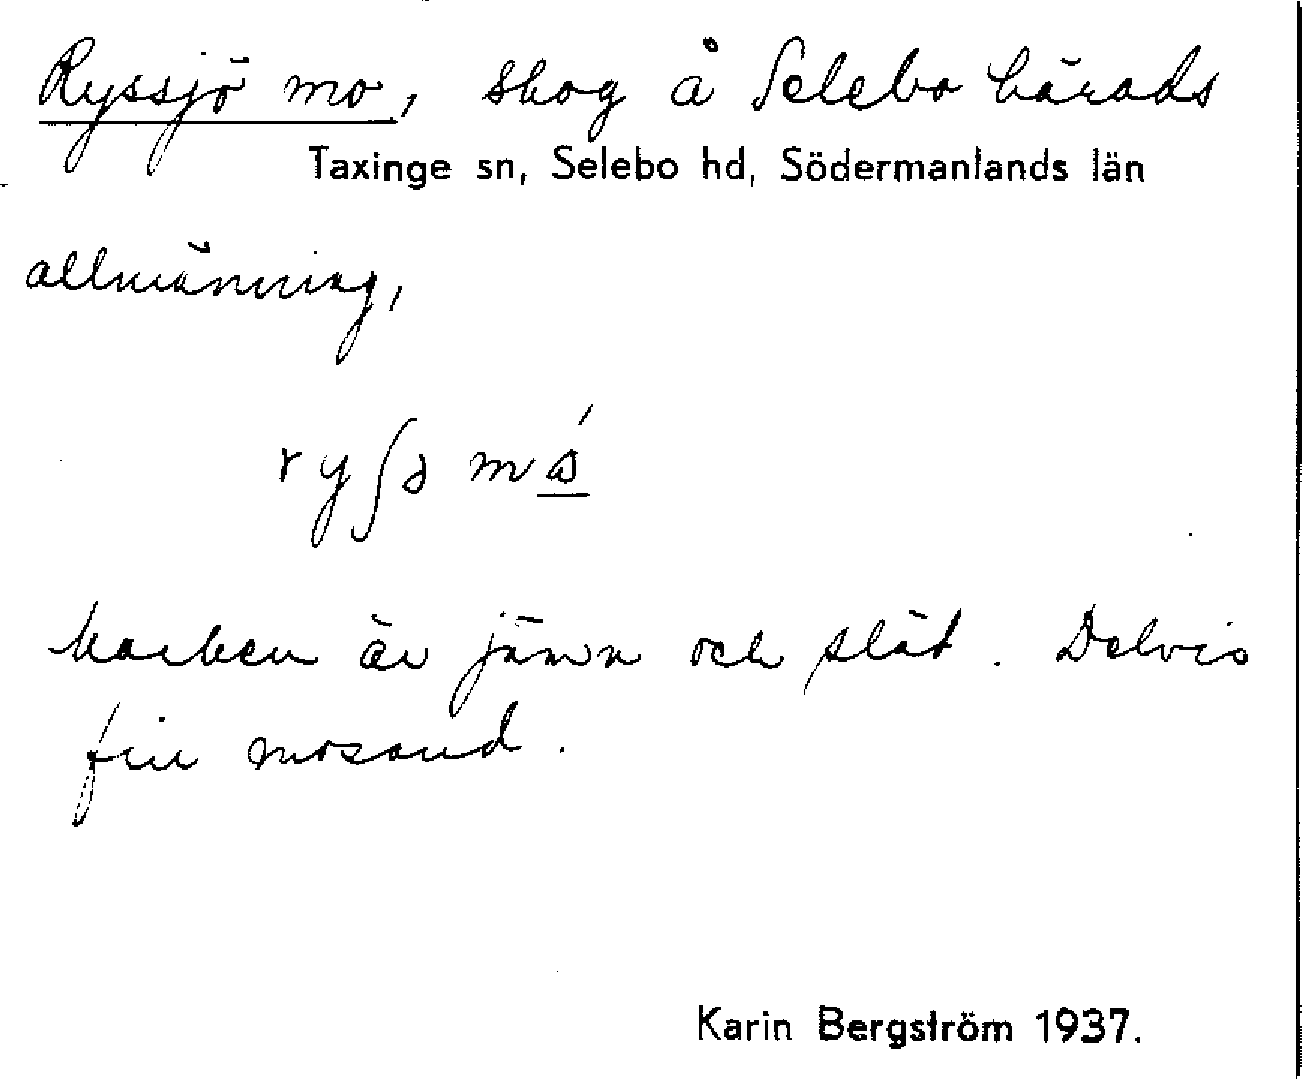 Ryssjö mo, skog å Selebo härads
Taxinge sn, Selebo hd, Södermanlands län
allmänning,
Marken är jämn och slät. Delvis
fin mosand.
Karin Bergström 1937.